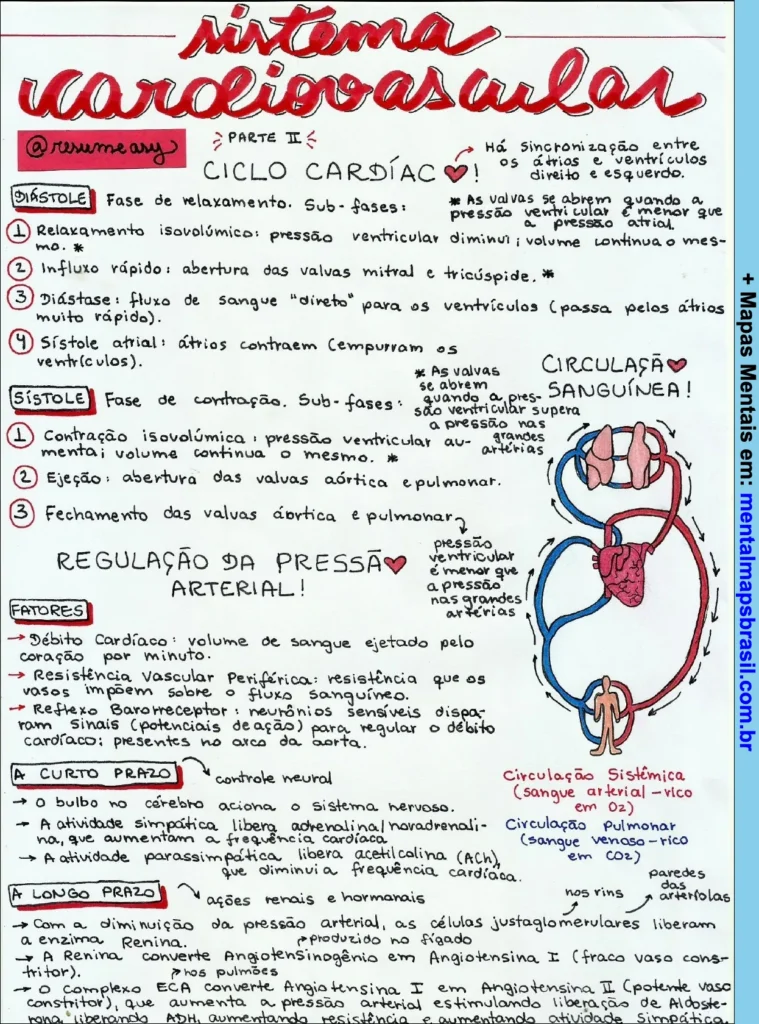 sistema
cardiovascular
@resumeasy
PARTE II
CICLO CARDÍAC !
Há sincronização entre
os átrios e ventrículos
direito e esquerdo.
DIÁSTOLE Fase de relaxamento. Sub-fases:
* As valvas se abrem quando a
pressão ventricular é menor que
a pressão atrial
1 Relaxamento isovolúmico: pressão ventricular diminui; volume continua o mes-
mo. *
2 Influxo rápido: abertura das valvas mitral e tricúspide. *
3 Diástase: fluxo de sangue "direto" para os ventrículos (passa pelos átrios
muito rápido).
4 Sístole atrial: átrios contraem (empurram os
ventrículos).
SÍSTOLE Fase de contração. Sub-fases:
* As valvas
se abrem
quando a pres-
são ventricular supera
a pressão nas
grandes
artérias
1 Contração isovolúmica: pressão ventricular au-
menta; volume continua o mesmo. *
2 Ejeção: abertura das valvas aórtica e pulmonar.
3 Fechamento das valvas áortica e pulmonar
pressão
ventricular
é menor que
a pressão
nas grandes
artérias
CIRCULAÇÃ
SANGUÍNEA!
REGULAÇÃO DA PRESSÃ
ARTERIAL!
FATORES
→ Débito Cardíaco: volume de sangue ejetado pelo
coração por minuto.
→ Resistência Vascular Periférica: resistência que os
vasos impõem sobre o fluxo sanguíneo.
→ Reflexo Barorreceptor: neurônios sensíveis dispa-
ram sinais (potenciais de ação) para regular o débito
cardíaco; presentes no arco da aorta.
Circulação Sistêmica
(sangue arterial - rico
em O2)
Circulação Pulmonar
(sangue venoso - rico
em CO2)
A CURTO PRAZO controle neural
→ O bulbo no cérebro aciona o sistema nervoso.
→ A atividade simpática libera adrenalina/noradrenali-
na, que aumentam a frequência cardíaca
→ A atividade parassimpática libera acetilcolina (ACh),
que diminui a frequência cardíaca.
A LONGO PRAZO ações renais e hormonais
nos rins
paredes
das
arteríolas
→ Com a diminuição da pressão arterial, as células justaglomerulares liberam
a enzima Renina.
produzido no fígado
→ A Renina converte Angiotensinogênio em Angiotensina I (fraco vaso cons-
tritor).
nos pulmões
→ O complexo ECA converte Angiotensina I em Angiotensina II (potente vaso
constritor), que aumenta a pressão arterial estimulando liberação de Aldoste-
rona, liberando ADH, aumentando resistência e aumentando atividade simpática.
+ Mapas Mentais em: mentalmapsbrasil.com.br